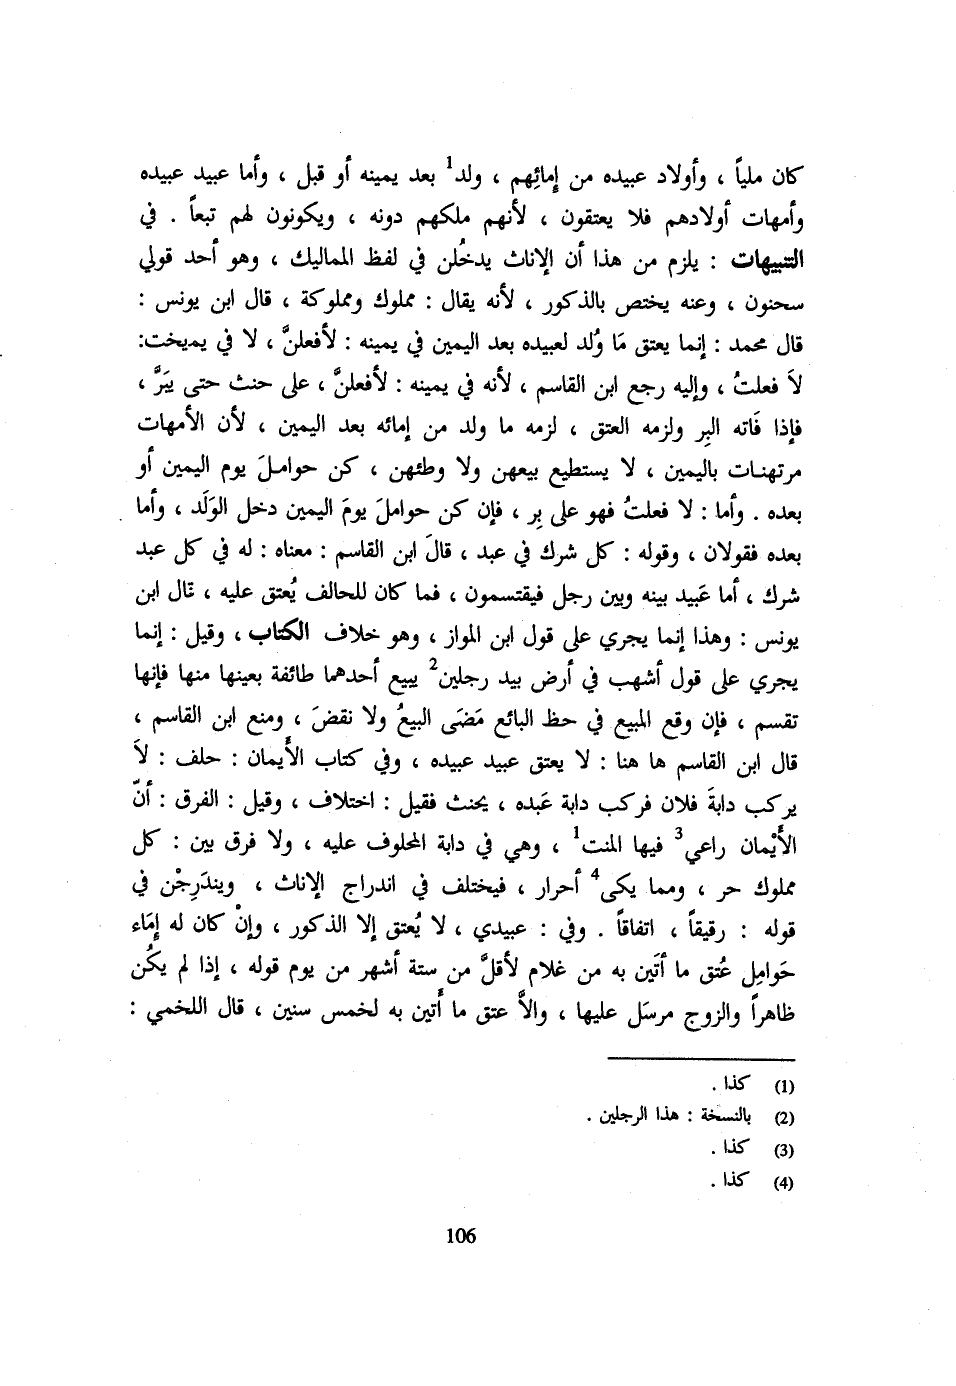 كان ملياً ، وأولاد عبيده من إمائِهم ، ولد1 بعد يمينه أو قبل ، وأما عبيد عبيده
وأمهات أولادهم فلا يعتقون ، لأنهم ملكهم دونه ، ويكونون لهم تبعاً . في
التنبيهات : يلزم من هذا أن الإناث يدخُلن في لفظ المماليك ، وهو أحد قولي
سحنون ، وعنه يختص بالذكور ، لأنه يقال : مملوك ومملوكة ، قال ابن يونس :
قال محمد : إنما يعتق مَا وُلد لعبيده بعد اليمين في يمينه : لأفعلنَّ ، لا في يميخت:
لاَ فعلتُ ، وإليه رجع ابن القاسم ، لأنه في يمينه : لأفعلنَّ ، على حنث حتى يَبَرَّ ،
فإذا فَاته البِر ولزمه العتق ، لزمه ما ولد من إمائه بعد اليمين ، لأن الأمهات
مرتهنات باليمين ، لا يستطيع بيعهن ولا وطئهن ، كن حوامـلَ يوم اليمين أو
بعده . وأما : لا فعلتُ فهو على بِر ، فإن كن حواملَ يومَ اليمين دخل الوَلَد ، وأما
بعده فقولان ، وقوله : كل شرك في عبد ، قالَ ابن القاسم : معناه : له في كل عبد
شرك ، أما عَبيد بينه وبين رجل فيقتسمون ، فما كان للحالف يُعتق عليه ، قال ابن
يونس : وهذا إنما يجري على قول ابن المواز ، وهو خلاف الكتاب ، وقيل : إنما
يجري على قول أشهب في أرض بيد رجلين2 يبيع أحدهما طائفة بعينها منها فإنها
تقسم ، فإن وقع المبيع في حظ البائع مَضَى البيعُ ولا نقضَ ، ومنع ابن القاسم ،
قال ابن القاسم ها هنا : لا يعتق عبيد عبيده ، وفي كتاب الأَيمان : حلف : لاَ
يركب دابةَ فلان فركب دابة عَبده ، يحنث فقيل : اختلاف ، وقيل : الفرق : أنّ
الأَيْمان راعي3 فيها المنت1 ، وهي في دابة المحلوف عليه ، ولا فرق بين : كل
مملوك حر ، ومما يكى4 أحرار ، فيختلف في اندراج الإناث ، ويندَرِجْن في
قوله : رقيقاً ، اتفاقاً . وفي : عبيدي ، لا يُعتق إلا الذكور ، وإنْ كان له إِمَاء
حَوامِل عُتق ما أتَين به من غلام لأقلَّ من ستة أشهر من يوم قوله ، إذا لم يكُن
ظاهراً والزوج مرسَل عليها ، والاَّ عتق ما أَتين به لخمس سنين ، قال اللخمي :
(1) كذا .
(2) بالنسخة : هذا الرجلين .
(3) كذا .
(4) كذا .
106